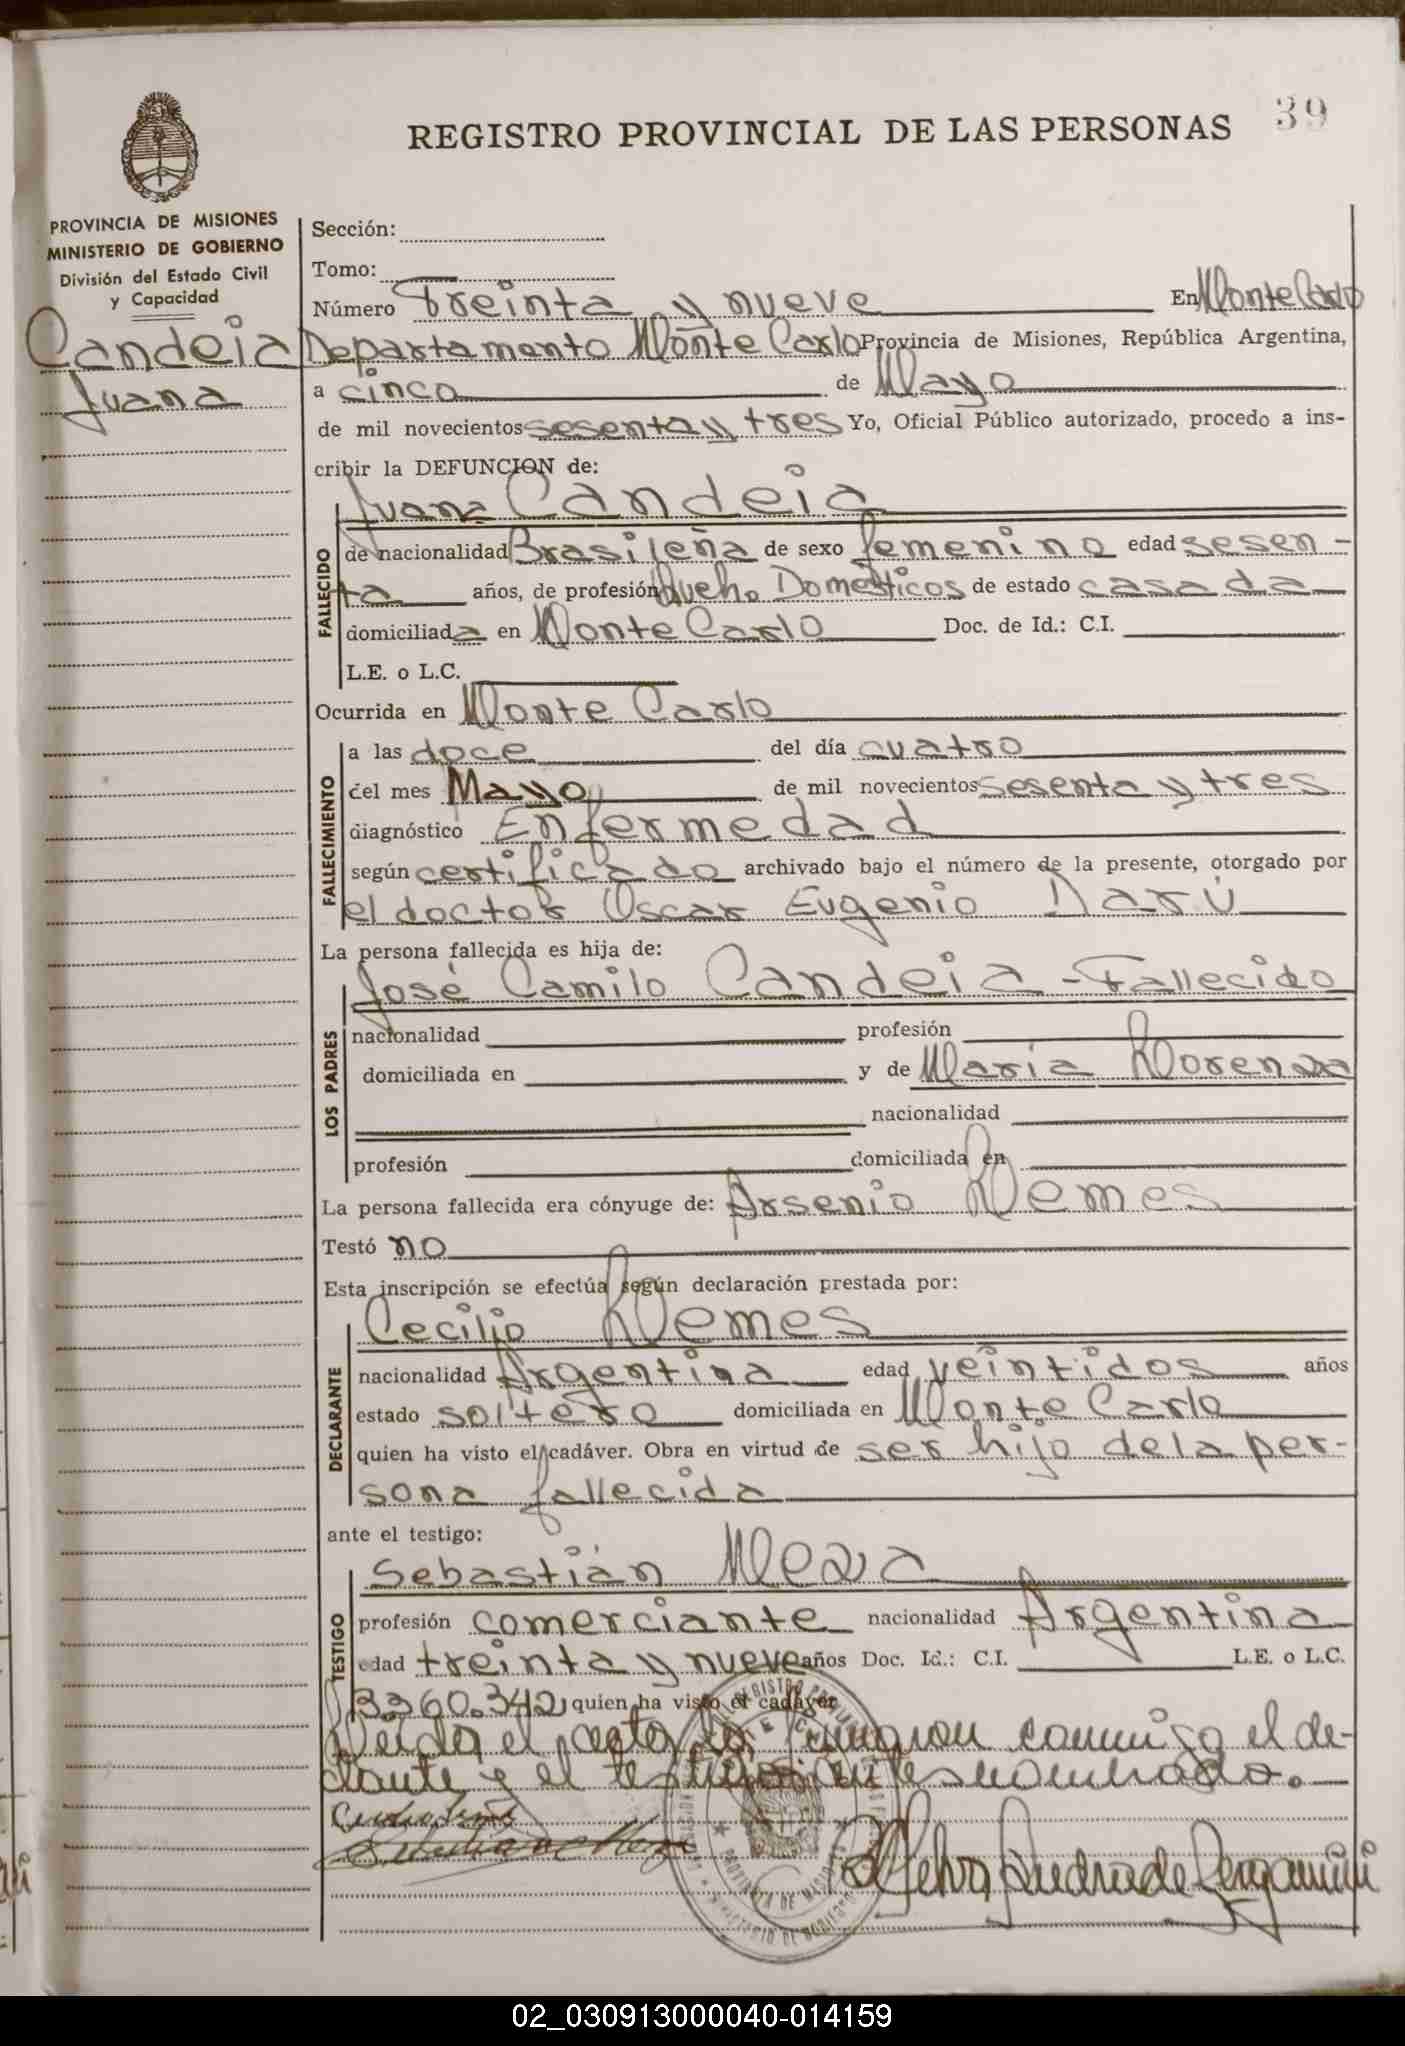 39
REGISTRO PROVINCIAL DE LAS PERSONAS
PROVINCIA DE MISIONES
MINISTERIO DE GOBIERNO
División del Estado Civil
y Capacidad
Candeia
Juana
Sección:
Tomo:
Número Treinta y nueve En Monte Carlo
Departamento Monte Carlo Provincia de Misiones, República Argentina,
a cinco de Mayo
de mil novecientos sesenta y tres Yo, Oficial Público autorizado, procedo a ins-
cribir la DEFUNCION de:
FALLECIDO
Juana Candeia
de nacionalidad Brasileña de sexo femenino edad sesen-
ta años, de profesión Queh. Domésticos de estado casada
domiciliada en Monte Carlo Doc. de Id.: C.I.
L.E. o L.C.
Ocurrida en Monte Carlo
FALLECIMIENTO
a las doce del día cuatro
del mes Mayo de mil novecientos sesenta y tres
diagnóstico Enfermedad
según certificado archivado bajo el número de la presente, otorgado por
el doctor Oscar Eugenio Darú
La persona fallecida es hija de:
LOS PADRES
José Camilo Candeia - Fallecido
nacionalidad profesión
domiciliada en y de María
nacionalidad
profesión domiciliada en
La persona fallecida era cónyuge de: Arsenio
Testó no
Esta inscripción se efectúa según declaración prestada por:
DECLARANTE
Cecilio
nacionalidad Argentina edad veintidos años
estado soltero domiciliada en Monte Carlo
quien ha visto el cadáver. Obra en virtud de ser hijo de la per-
sona fallecida
ante el testigo:
TESTIGO
Sebastián
profesión comerciante nacionalidad Argentina
edad treinta y nueve años Doc. Id.: C.I. L.E. o L.C.
3360.342, quien ha visto el cadáver
Leída el acta la firmaron conmigo el de-
clarante y el testigo antes nombrado.
PROVINCIA DE MISIONES
MINISTERIO DE GOBIERNO
02_030913000040-014159